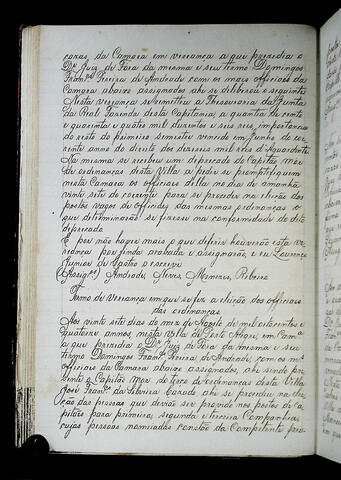 soras da Camara em vereança a que presidia o
Dr. Juiz de Fora da mesma e seu termo Domingos
Franco Pereira de Andrade com os mais officiaes da
Camara abaixo assignados ahi se deliberou o seguinte
Nesta vereança se remetteu a Thesouraria da Junta
da Real Fazenda desta Capitania, a quantia de cento
e quarenta e quatro mil duzentos e seis reis, importancia
do resto do primeiro semestre vencido em Junho do cor
rente anno do direito dos dezeseis mil reis d'Aguardente
Na mesma se recebeu um deprecado do Capitão Mor
de ordenanças desta Villa a pedir se promptifiquem
nesta Camara os officiaes della no dia de amanhã
vinte sete do corrente para se proceder na eleição dos
postos vagos de Officiaes das mesmas ordenanças o
que determinarão se fizesse na conformidade do dito
deprecado
E por não haver mais o que deferir houverão esta ve
reança por finda acabada e assignarão, e eu Lourenço
Junior de Castro o escrevi
(Assigdos) Andrade, Neves, Menezes, Ribeiro
Termo de Vereança em que se fez a eleição dos officiaes
das ordenanças
Aos vinte sete dias do mez de Agosto de mil oitocentos e
quatorze annos nesta Villa de Porto Alegre, em Camara
a que presidia o Dr. Juiz de Fora da mesma e seu
termo Domingos Franco Pereira de Andrade, com os mais
officiaes da Camara abaixo assignados, ahi sendo pre
sente o Capitão Mor do terço de ordenanças desta Villa
José Franco da Silveira Casado ahi se procedeu na elei
ção das pessoas que devião ser providas nos postos de Ca
pitães para primeira, segunda e terceira Companhias,
cujas pessoas nomiadas constão da Competente pro-